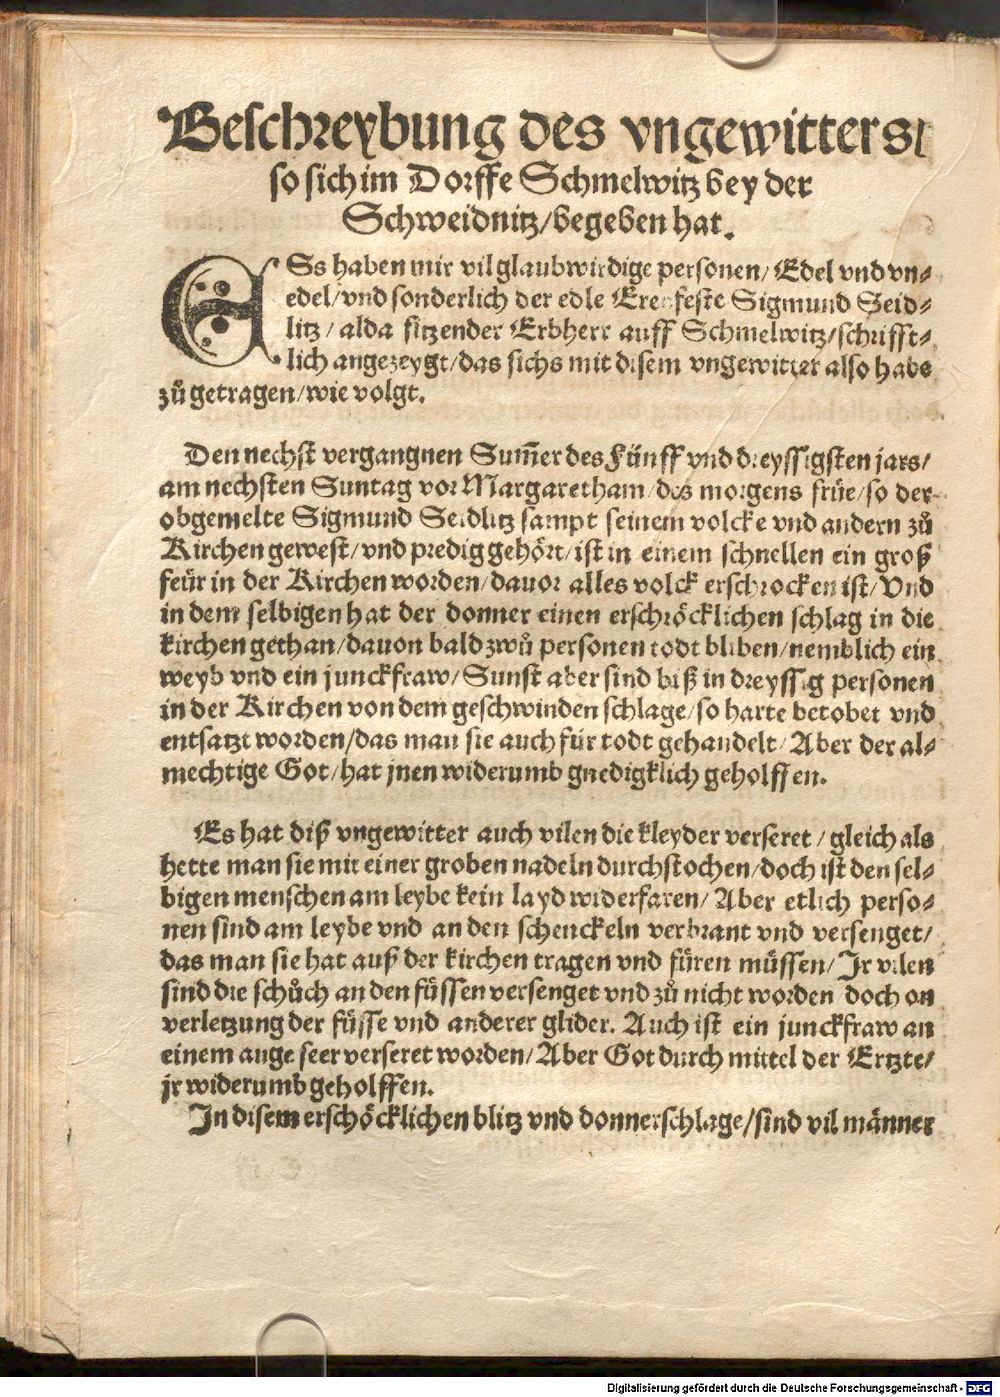 Beschreybung des vngewitters/
so sich im Dorffe Schmelwitz bey der
Schweidnitz/begeben hat.
ESs haben mir vil glaubwirdige personen/ Edel vnd vn-
edel/vnd sonderlich der edle Erenfeste Sigmund Seid-
litz/ alda sitzender Erbherr auff Schmelwitz/schrifft-
lich angezeygt/das sichs mit disem vngewitter also habe
zů getragen/wie volgt.
Den nechst vergangnen Sum̃er des Fünff vnd dreyssigsten jars/
am nechsten Suntag vor Margaretham/des morgens früe/so der
obgemelte Sigmund Seidlitz sampt seinem volcke vnd andern zů
Kirchen gewest/vnd predig gehört/ist in einem schnellen ein groß
feür in der Kirchen worden/dauor alles volck erschrocken ist/Vnd
in dem selbigen hat der donner einen erschröcklichen schlag in die
kirchen gethan/dauon bald zwů personen todt bliben/nemblich ein
weyb vnd ein junckfraw/Sunst aber sind biß in dreyssig personen
in der Kirchen von dem geschwinden schlage/so harte betobet vnd
entsatzt worden/das man sie auch für todt gehandelt/Aber der al-
mechtige Got/hat jnen widerumb gnedigklich geholffen.
Es hat diß vngewitter auch vilen die kleyder verseret/gleich als
hette man sie mit einer groben nadeln durchstochen/doch ist den sel-
bigen menschen am leybe kein layd widerfaren/Aber etlich perso-
nen sind am leybe vnd an den schenckeln verbrant vnd versenget/
das man sie hat auß der kirchen tragen vnd füren müssen/Jr vilen
sind die schůch an den füssen versenget vnd zů nicht worden doch on
verletzung der füsse vnd anderer glider. Auch ist ein junckfraw an
einem auge seer verseret worden/Aber Got durch mittel der Ertzte/
jr widerumb geholffen.
In disem erschöcklichen blitz vnd donnerschlage/sind vil männer
Digitalisierung gefördert durch die Deutsche Forschungsgemeinschaft - DFG